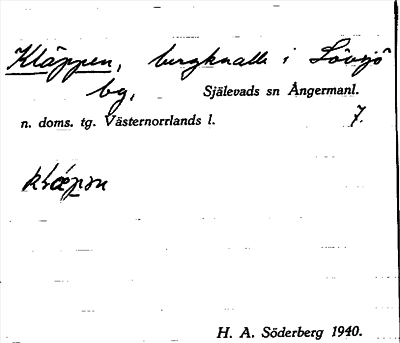 Kläppen, bergknalle i Lövsjö
bg,
Själevads sn Ångermanl.
n. doms. tg. Västernorrlands l. 7.
klæpm
H. A. Söderberg 1940.